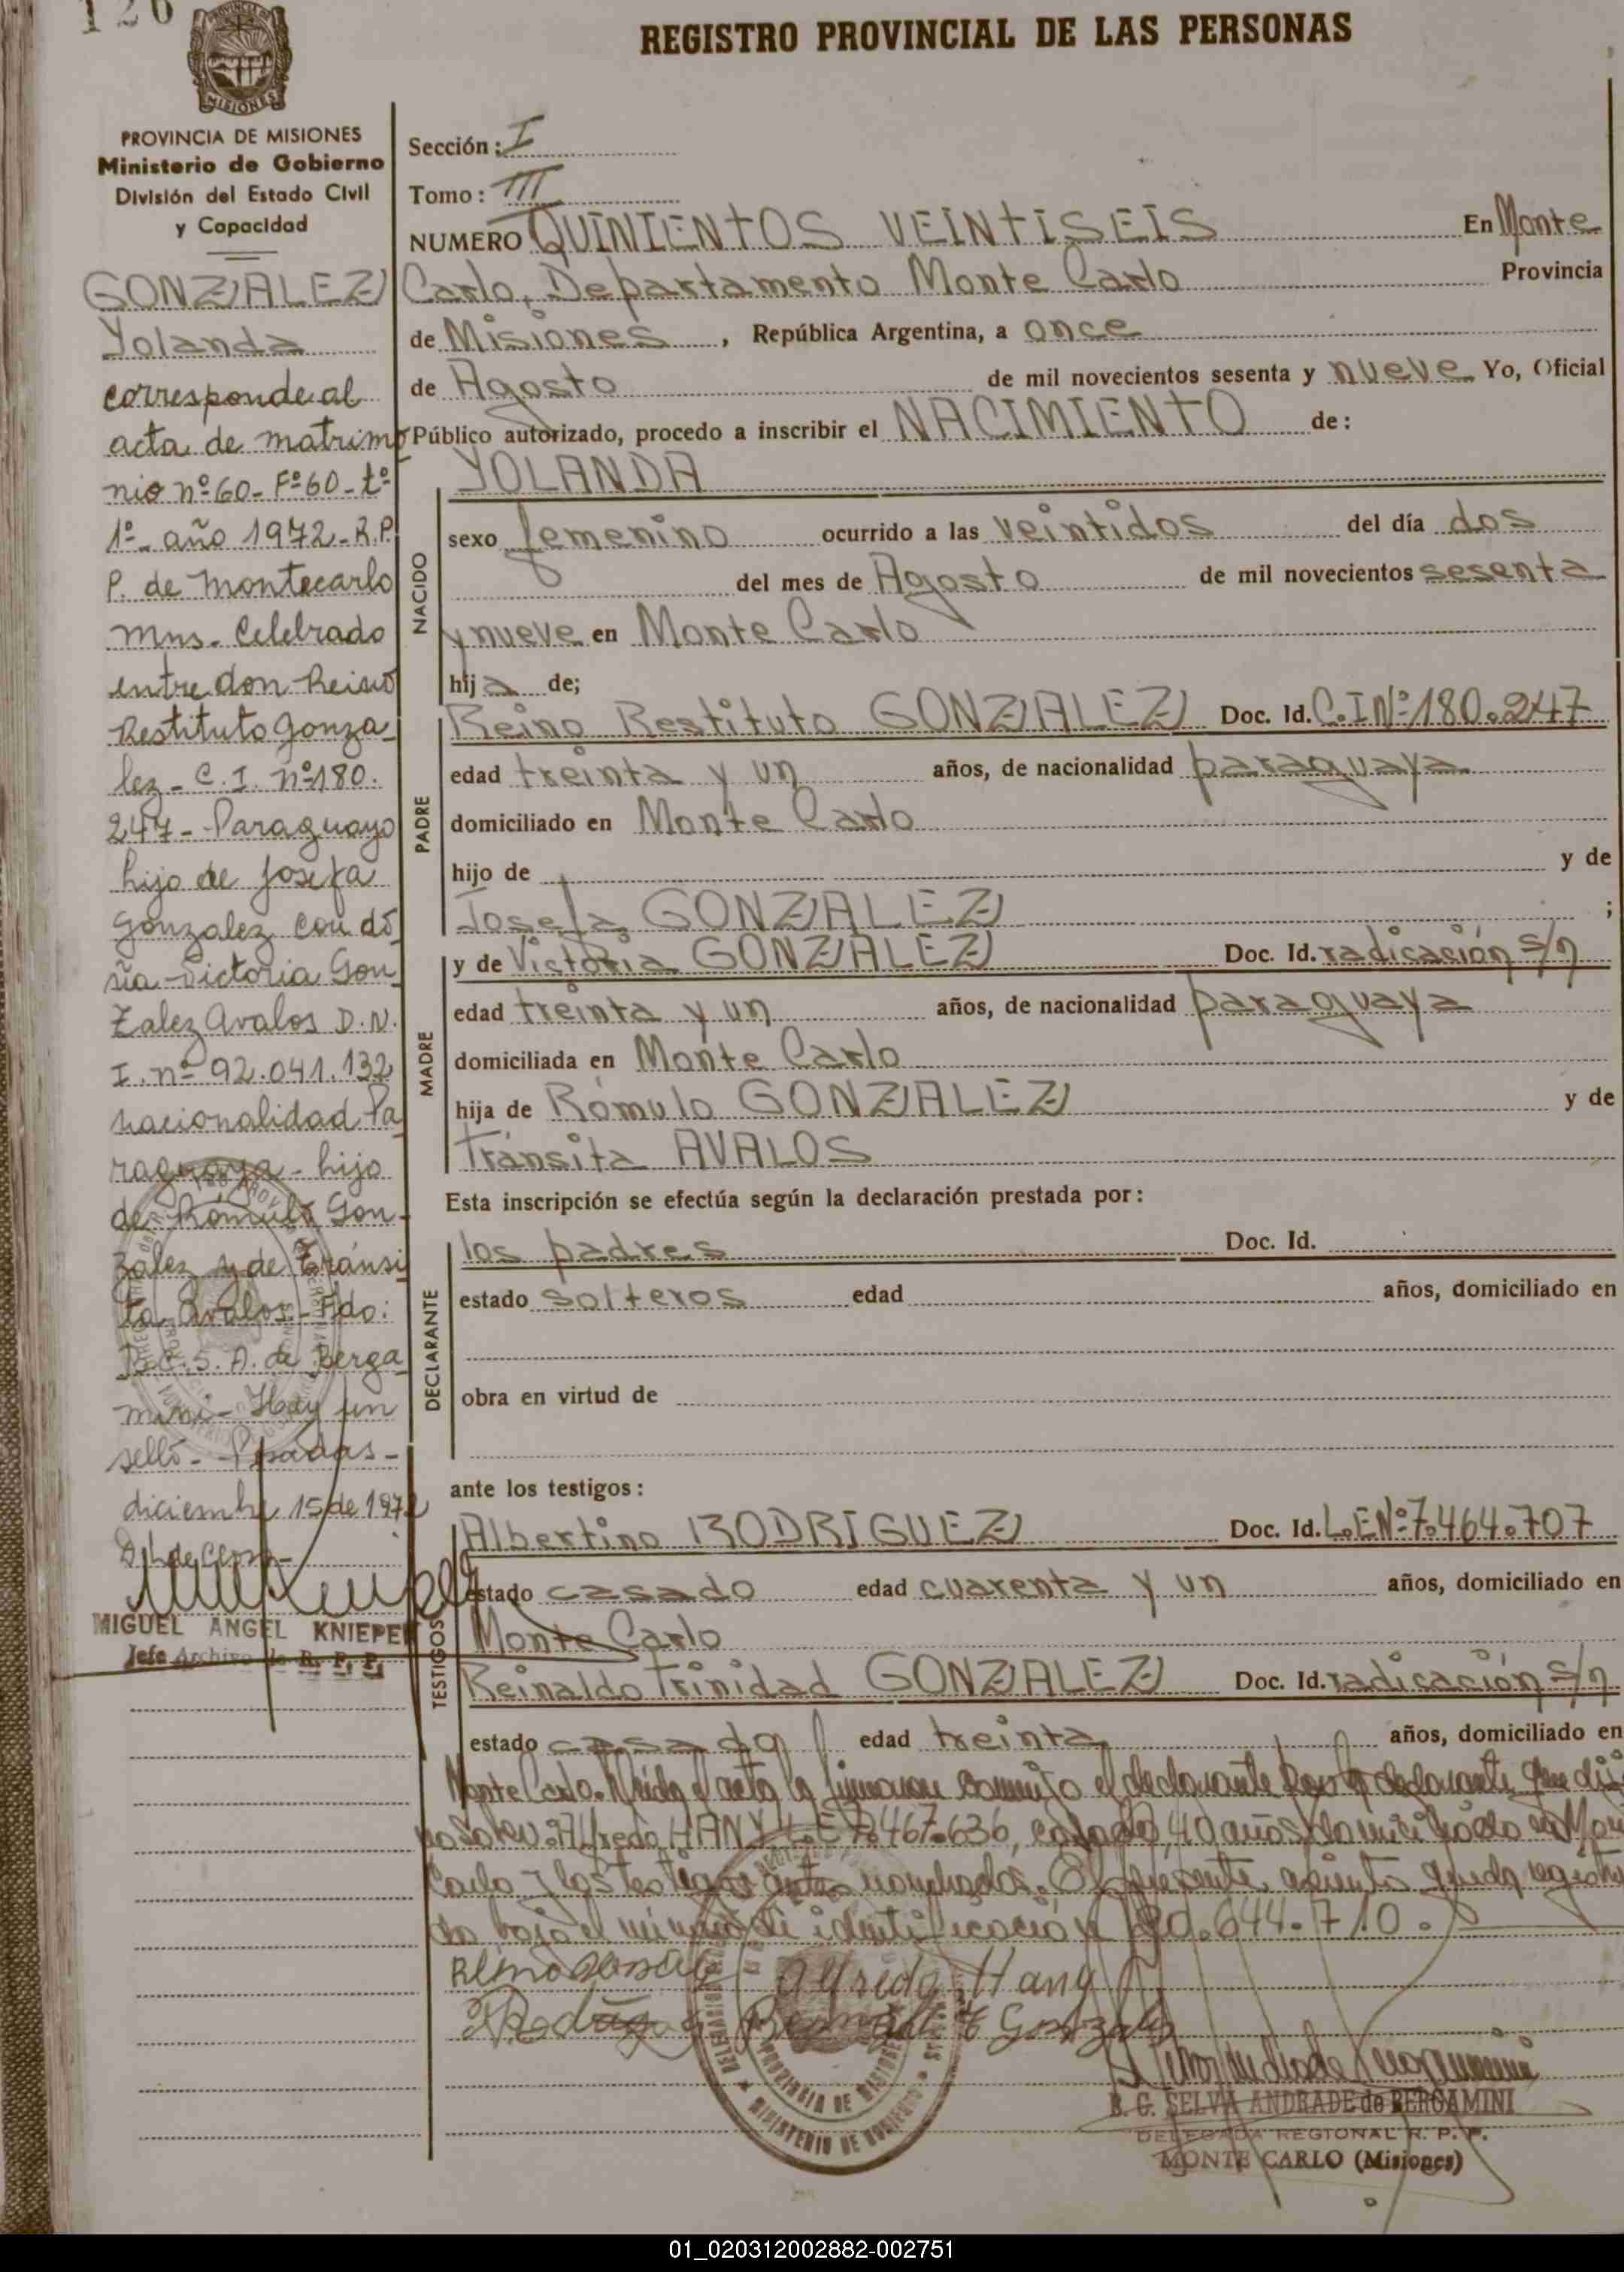 126
REGISTRO PROVINCIAL DE LAS PERSONAS
MISIONES
PROVINCIA DE MISIONES
Ministerio de Gobierno
División del Estado Civil
y Capacidad
GONZALEZ
Yolanda
corresponde al
acta de matrimo
nio nº 60- Fº 60- tº
1º- año 1972- R.P.
P. de Montecarlo
Mns. Celebrado
entre don Reino
Restituto Gonza-
lez- C.I. nº 180.
247- Paraguayo
hijo de Josefa
Gonzalez con do
ña Victoria Gon
zalez Avalos D.N.
I. nº 92.041.132
nacionalidad Pa
raguaya- hijo
de Rómulo Gon-
zalez y de Tránsi
ta Avalos- Fdo:
B.C.S.A. de Berga
mini- Hay un
sello- Posadas-
diciembre 15 de 1972
MIGUEL ANGEL KNIEPER
Jefe Archivo de R. P. P.
Sección: I
Tomo: III
NUMERO QUINIENTOS VEINTISEIS En Monte
Carlo, Departamento Monte Carlo Provincia
de Misiones, República Argentina, a once
de Agosto de mil novecientos sesenta y nueve Yo, Oficial
Público autorizado, procedo a inscribir el NACIMIENTO de:
YOLANDA
NACIDO
sexo femenino ocurrido a las veintidos del día dos
del mes de Agosto de mil novecientos sesenta
y nueve en Monte Carlo
hija de;
PADRE
Reino Restituto GONZALEZ Doc. Id. C.I Nº 180.247
edad treinta y un años, de nacionalidad paraguaya
domiciliado en Monte Carlo
hijo de y de
Josefa GONZALEZ ;
MADRE
y de Victoria GONZALEZ Doc. Id. radicación s/n
edad treinta y un años, de nacionalidad paraguaya
domiciliada en Monte Carlo
hija de Rómulo GONZALEZ y de
Tránsita AVALOS
Esta inscripción se efectúa según la declaración prestada por:
DECLARANTE
los padres Doc. Id.
estado solteros edad años, domiciliado en
obra en virtud de
ante los testigos:
TESTIGOS
Albertino RODRIGUEZ Doc. Id. L.E Nº 7.464.707
estado casado edad cuarenta y un años, domiciliado en
Monte Carlo
Reinaldo Trinidad GONZALEZ Doc. Id. radicación s/n
estado casado edad treinta años, domiciliado en
Monte Carlo. Leída el acta la firmaron conmigo el declarante por la declarante que dijo
no saber: Alfredo HANY L.E 7.467.636, casado, 40 años domiciliado en Monte
Carlo y los testigos antes nombrados. El presente asiento queda registra
do bajo el número de identificación 20.644.710.
Alfredo Hany
Gonzalez
PROVINCIA DE MISIONES
MINISTERIO DE GOBIERNO
B. C. SELVA ANDRADE de BERGAMINI
DELEGADA REGIONAL R. P. P.
MONTE CARLO (Misiones)
01_020312002882-002751